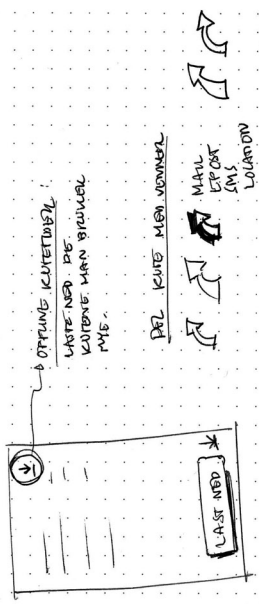 OFFLINE RUTETIDER!
LASTE NED DE
RUTENE MAN BRUKER
MYE.
DEL RUTE MED VENNER
MAIL
EPOST
SMS
LOCATION
LAST NED *